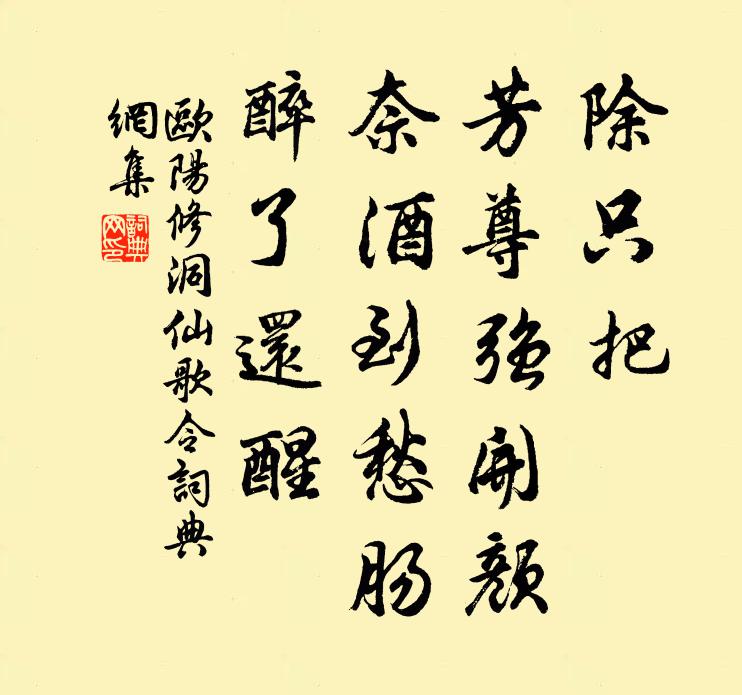 除只把
芳尊強開顏
奈酒到愁腸
醉了還醒
歐陽修洞仙歌令詞典
網集
詞典
網印